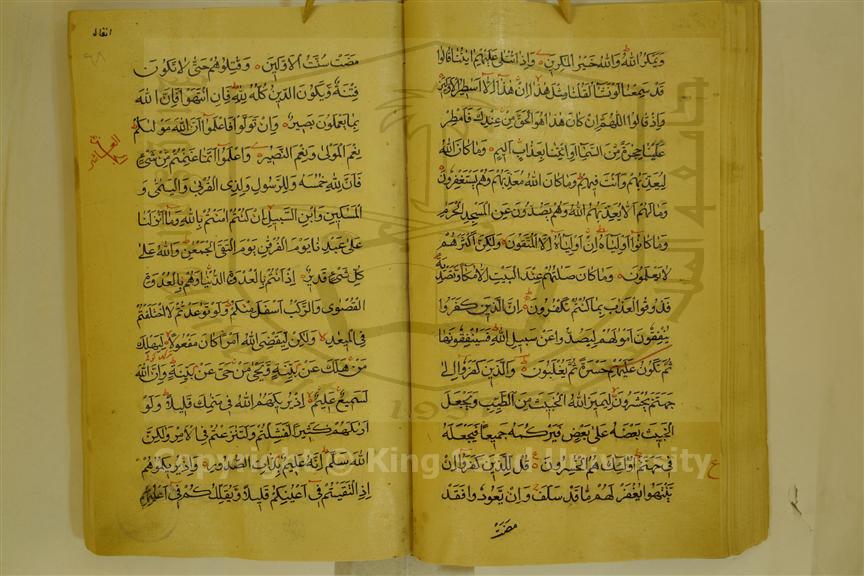 ويمكر الله والله خير المكرين واذا تتلى عليهم ايتنا قالوا
قد سمعنا لو نشاء لقلنا مثل هذا ان هذا الا اسطير الاولين
واذ قالوا اللهم ان كان هذا هو الحق من عندك فامطر
علينا حجارة من السماء او ائتنا بعذاب اليم وما كان الله
ليعذبهم وانت فيهم وما كان الله معذبهم وهم يستغفرون
وما لهم الا يعذبهم الله وهم يصدون عن المسجد الحرام
وما كانوا اولياءه ان اولياؤه الا المتقون ولكن اكثرهم
لا يعلمون وما كان صلاتهم عند البيت الا مكاء وتصدية
فذوقوا العذاب بما كنتم تكفرون ان الذين كفروا
ينفقون اموالهم ليصدوا عن سبيل الله فسينفقونها
ثم تكون عليهم حسرة ثم يغلبون والذين كفروا الى
جهنم يحشرون ليميز الله الخبيث من الطيب ويجعل
الخبيث بعضه على بعض فيركمه جميعا فيجعله
في جهنم اولئك هم الخسرون قل للذين كفروا ان
ينتهوا يغفر لهم ما قد سلف وان يعودوا فقد
مضت
ع
انفال
٩٨
مضت سنت الاولين وقتلوهم حتى لا تكون
فتنة ويكون الدين كله لله فان انتهوا فان الله
بما يعملون بصير وان تولوا فاعلموا ان الله مولىكم
نعم المولى ونعم النصير واعلموا انما غنمتم من شيء
فان لله خمسه وللرسول ولذي القربى واليتمى و
المسكين وابن السبيل ان كنتم امنتم بالله وما انزلنا
على عبدنا يوم الفرقان يوم التقى الجمعن والله على
كل شيء قدير اذ انتم بالعدوة الدنيا وهم بالعدوة
القصوى والركب اسفل منكم ولو تواعدتم لاختلفتم
في الميعد ولكن ليقضي الله امرا كان مفعولا ليهلك
من هلك عن بينة ويحيى من حي عن بينة وان الله
لسميع عليم اذ يريكهم الله في منامك قليلا ولو
اريكهم كثيرا لفشلتم ولتنزعتم في الامر ولكن
الله سلم انه عليم بذات الصدور واذ يريكموهم
اذ التقيتم في اعينكم قليلا ويقللكم في اعينهم
Copyright © King Saud University